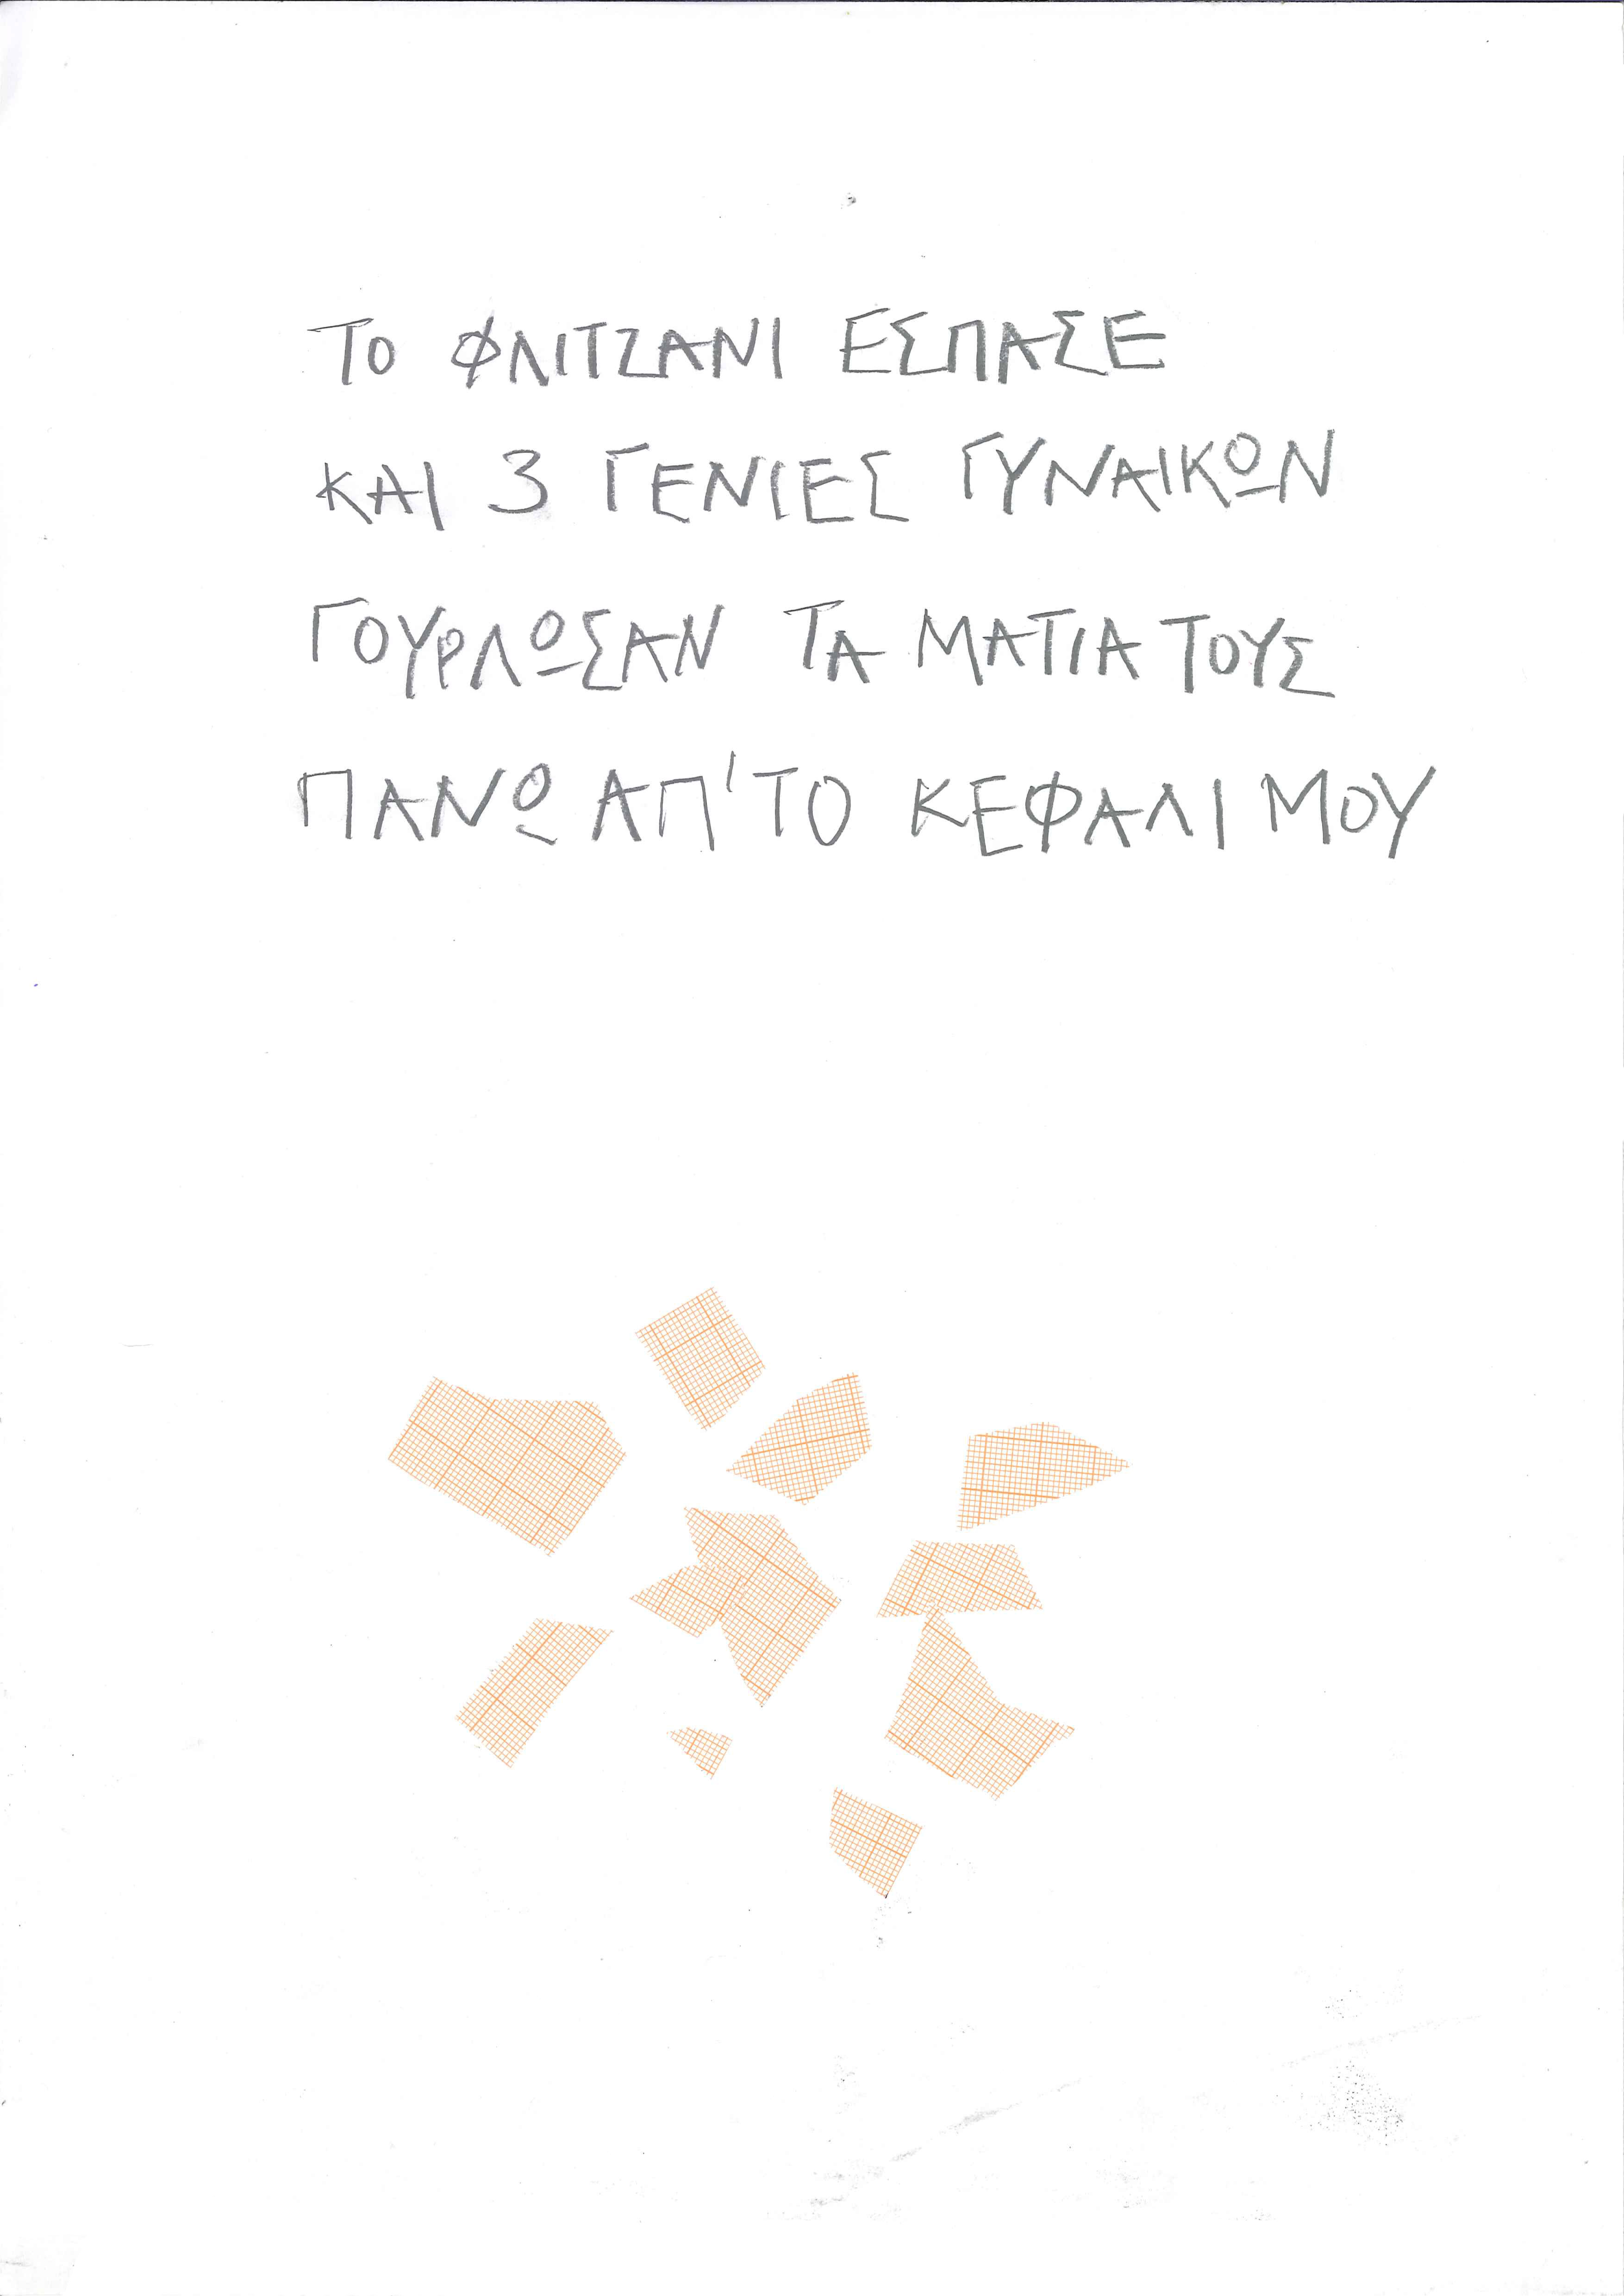 ΤΟ ΦΛΙΤΖΑΝΙ ΕΣΠΑΣΕ
ΚΑΙ 3 ΓΕΝΙΕΣ ΓΥΝΑΙΚΩΝ
ΓΟΥΡΛΩΣΑΝ ΤΑ ΜΑΤΙΑ ΤΟΥΣ
ΠΑΝΩ ΑΠ' ΤΟ ΚΕΦΑΛΙ ΜΟΥ